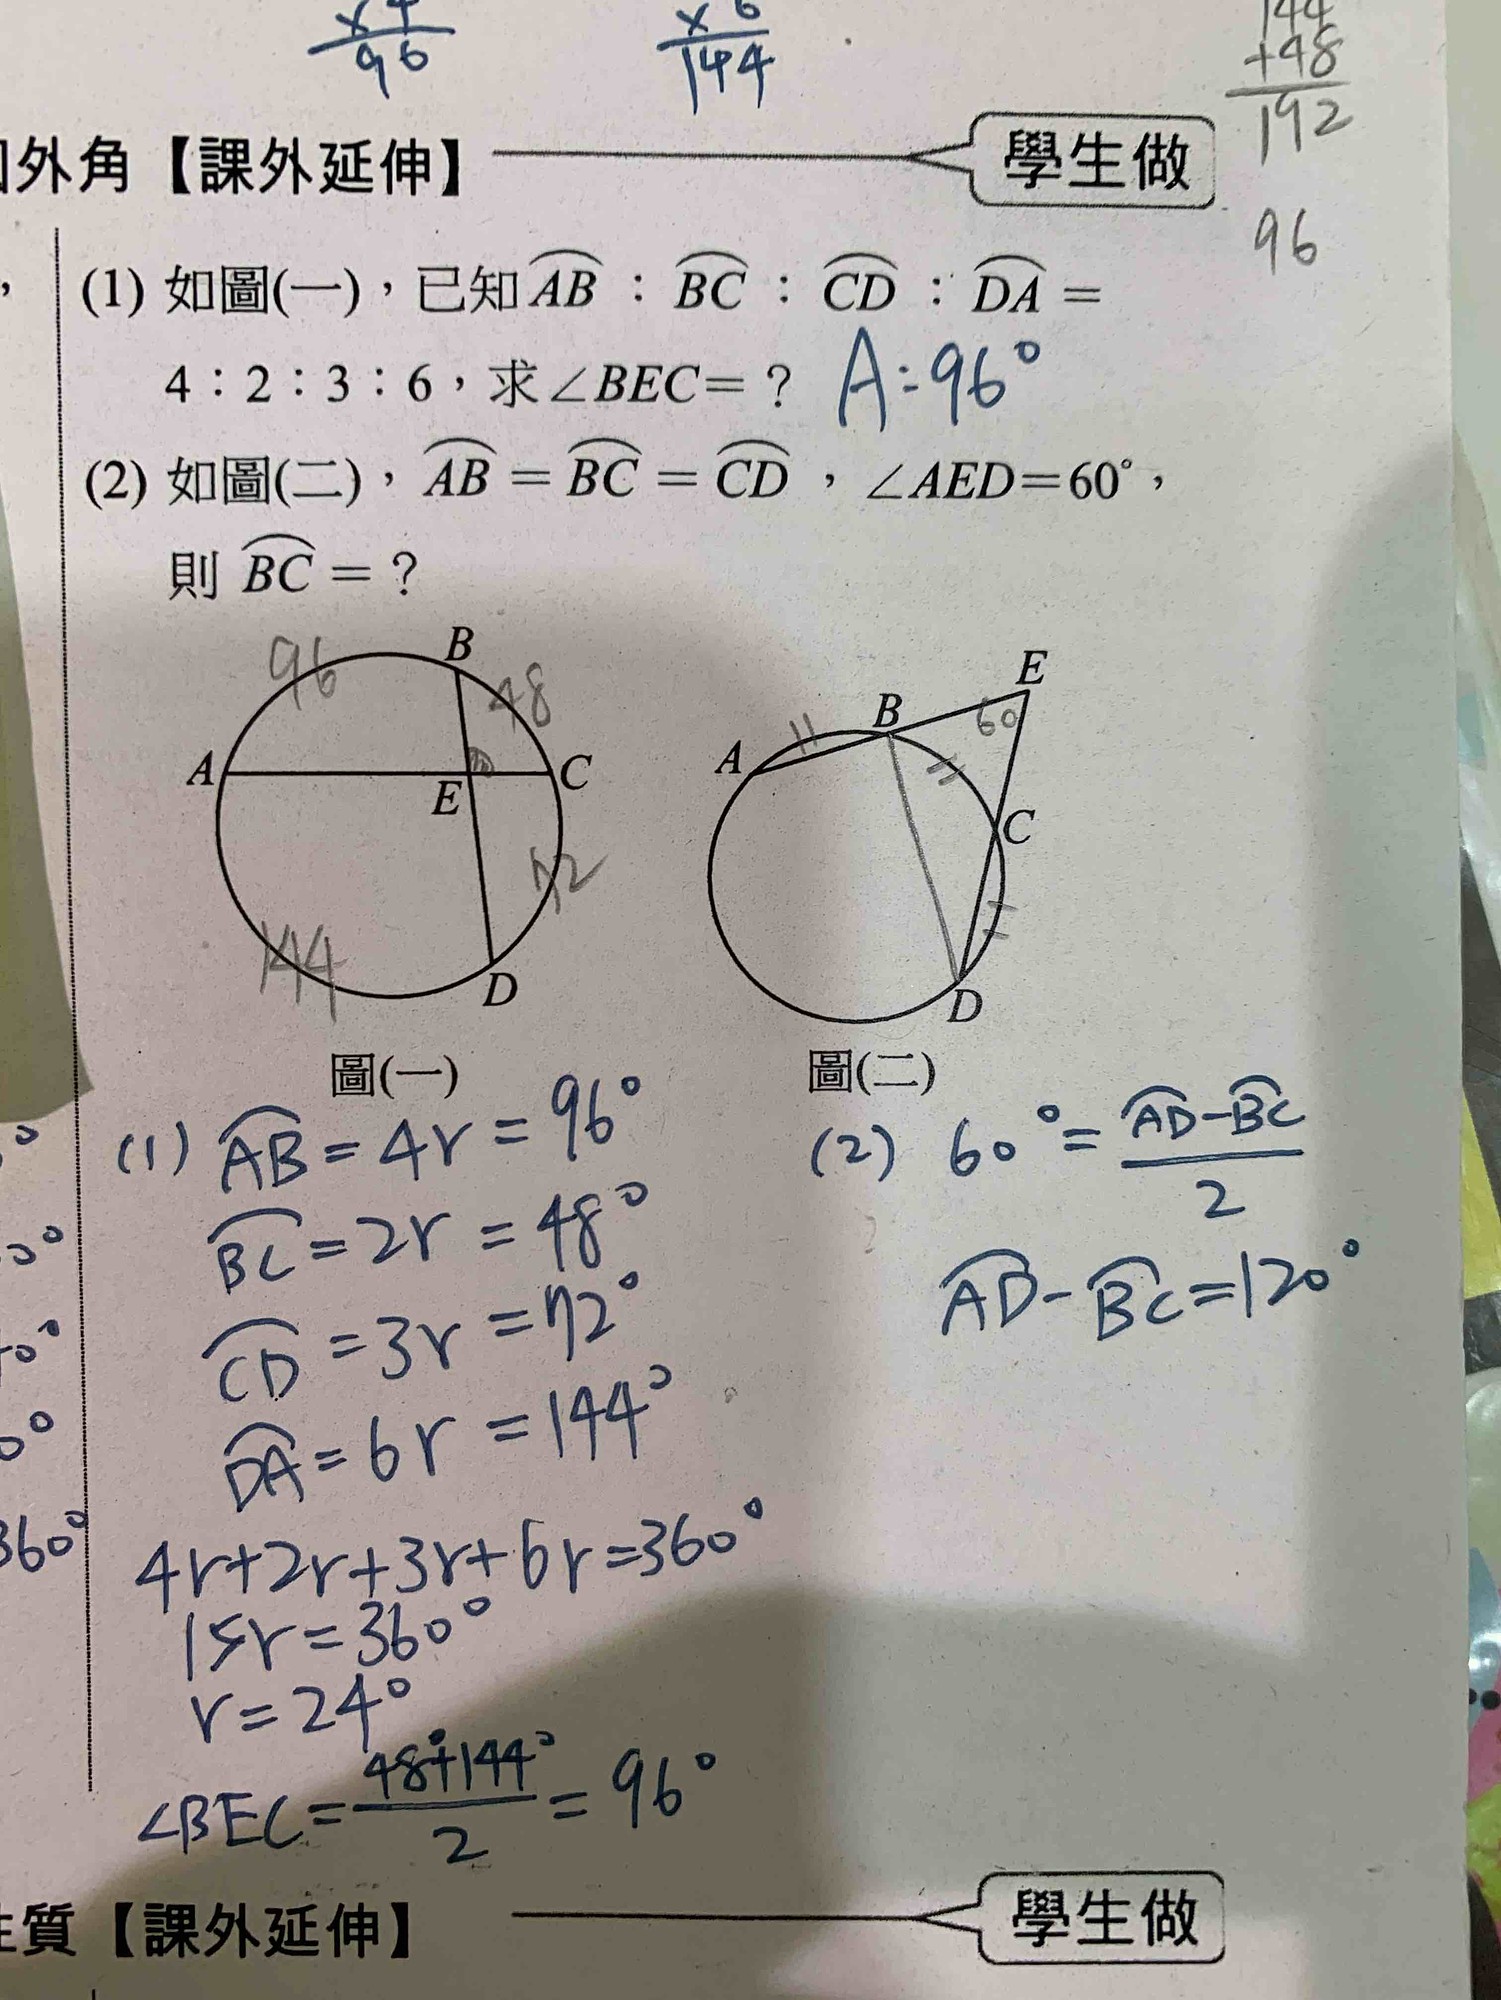 ×4
96
× 6
144
144
+48
192
96
外角【課外延伸】
學生做
(1) 如圖(一),已知AB:BC:CD:DA=
4:2:3:6,求∠BEC=? A:96°
(2) 如圖(二),AB=BC=CD,∠AED=60°,
則BC=?
96
B
48
A
E
C
72
144
D
圖(一)
E
60
B
A
C
D
圖(二)
(1) AB=4r=96°
BC=2r=48°
CD=3r=72°
DA=6r=144°
4r+2r+3r+6r=360°
15r=360°
r=24°
∠BEC=48°+144°/2=96°
(2) 60°=AD-BC/2
AD-BC=120°
360°
質【課外延伸】
學生做